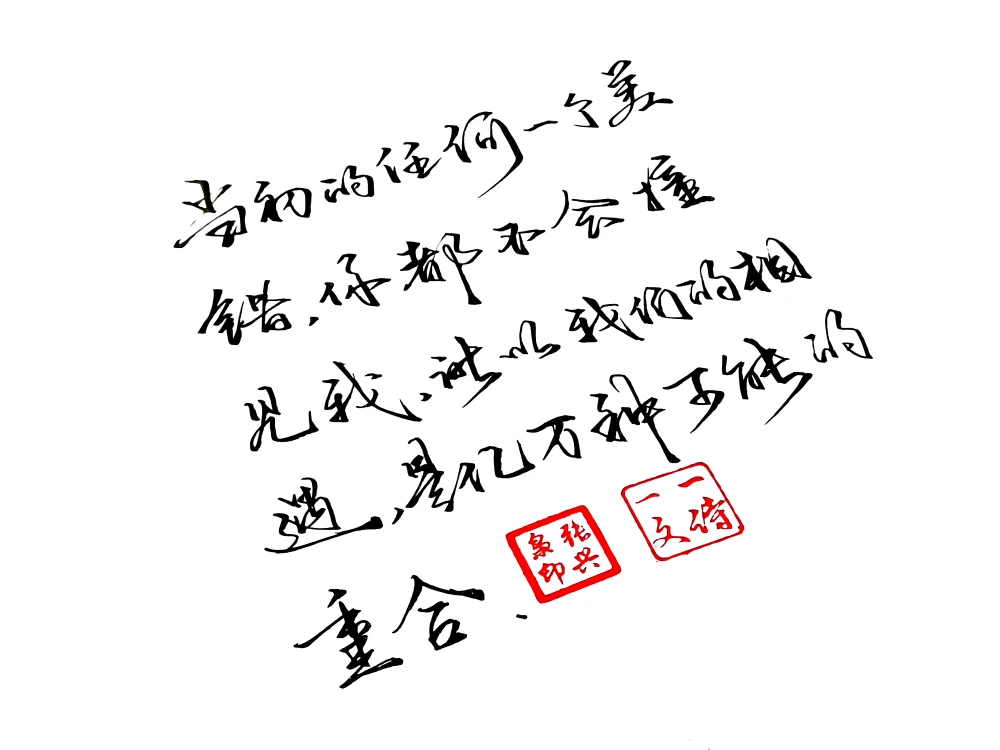 当初的任何一个差
错,你都不会撞
见我,所以我们的相
遇,是亿万种可能的
重合.
张兴枭印
一诗一文